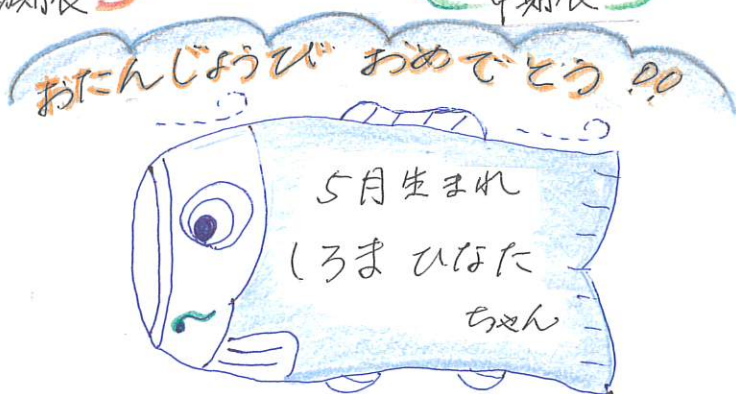 おたんじょうび おめでとう!!
5月生まれ
しろま ひなた
ちゃん